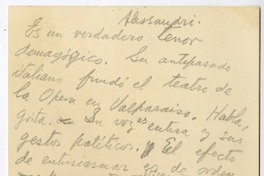 Alessandri.
Es un verdadero tenor
demagógico. Su antepasado
italiano fundó el teatro de
la Opera en Valparaiso. Habla,
grita. Su voz es entera y sus
gestos patéticos. El efecto
de entusiasmar es de orden